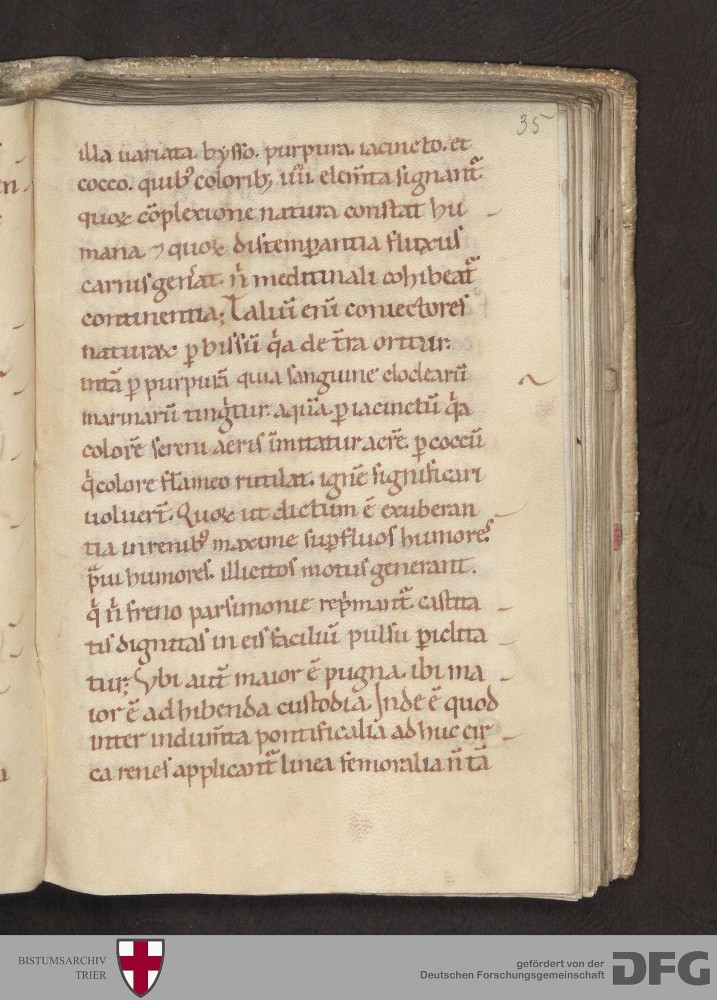 35
illa uariata. bysso. purpura. iacincto. et
cocco. quib᷒ colorib; iiii. elem̅ta signant᷑
quoꝝ co̅plexione natura constat hu
mana. ⁊ quoꝝ distemꝑantia fluxus
carnis gen̅at. n̅ meditinali cohibeat᷑
continentia; Taliu̅ eni̅ coniectores
naturaꝝ ꝑ bissu̅ qͣa de t̅ra oritur.
ꝑ purpura̅ quia sanguine cloclearu̅
marinaru̅ ting̅tur. aqua̅. ꝑ iacinctu̅ qͣa
colore̅ sereni aeris imitatur aere̅. ꝑ coccu̅
qͥ colore flameo rutilat. igne̅ significari
uoluer̅t. Quoꝝ ut dictum e̅ exuberan
tia in renib᷒ maxime suꝑfluos humores.
praui humores. illicitos motus generant.
qͥ n̅ freno parsimonie rep̅mant᷑. castita
tis dignitas in eis faciliu̅ pulsu ꝑiclita
tur; Vbi aut̅ maior e̅ pugna. ibi ma
ior e̅ adhibenda custodia. Inde e̅ quod
inter indum̅ta pontificalia adhuc cir
ca renes applicant᷑ linea femoralia n̅ ta̅
BISTUMSARCHIV
TRIER
gefördert von der
Deutschen Forschungsgemeinschaft
DFG